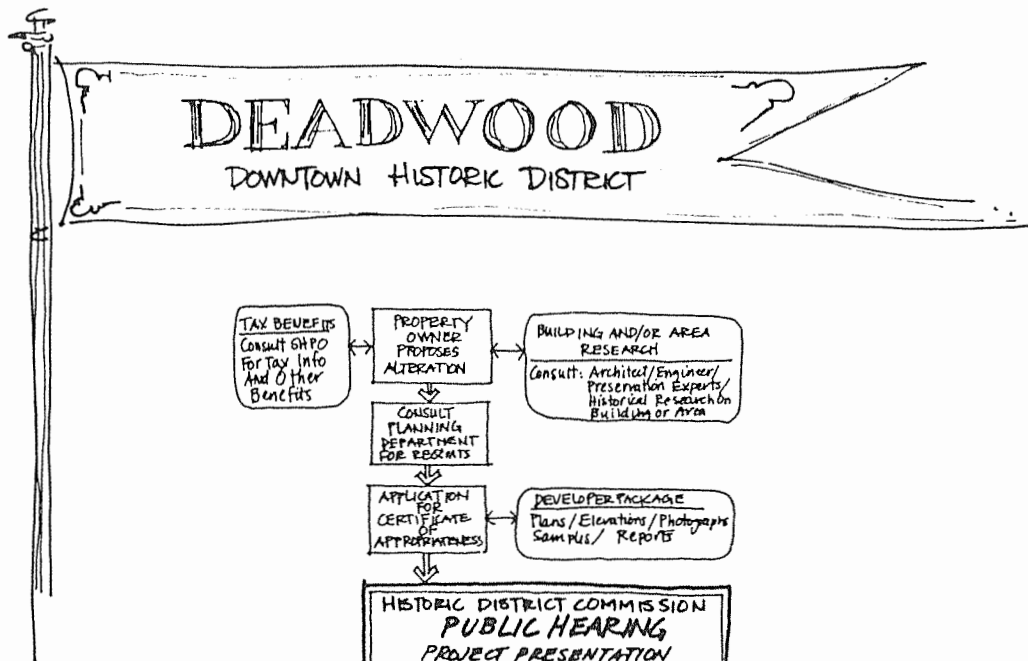 DEADWOOD
DOWNTOWN HISTORIC DISTRICT
TAX BENEFITS
Consult SHPO
For Tax Info
And Other
Benefits
PROPERTY
OWNER
PROPOSES
ALTERATION
BUILDING AND/OR AREA
RESEARCH
Consult: Architect/Engineer/
Preservation Experts/
Historical Research on
Building or Area
CONSULT
PLANNING
DEPARTMENT
FOR REQMTS
APPLICATION
FOR
CERTIFICATE
OF
APPROPRIATENESS
DEVELOPER PACKAGE
Plans/Elevations/Photographs
Samples/ Reports
HISTORIC DISTRICT COMMISSION
PUBLIC HEARING
PROJECT PRESENTATION